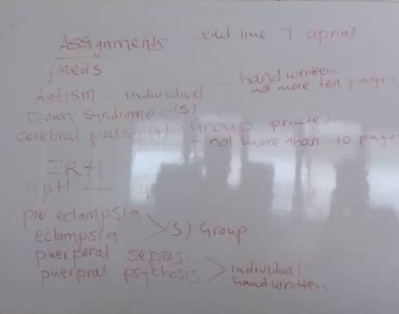 Assignments dead line 7 april
paeds
Autism - individual - hand written not more ten pages
Down syndrome - (5)
cerebral palsy (4) Group printed - not more than 10 page
IRH
opth 4
pre eclampsia
eclampsia > (5) Group
puerperal sepsis
puerpral psychosis > individual handwritten